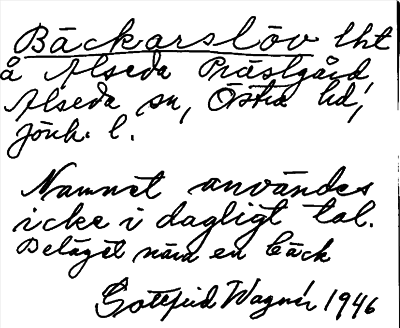 Bäckarslöv lht
å Alseda Prästgård
Alseda sn, Östra hd,
Jönk. l.
Namnet användes
icke i dagligt tal.
Beläget nära en bäck
Gottfrid Wagnér 1946